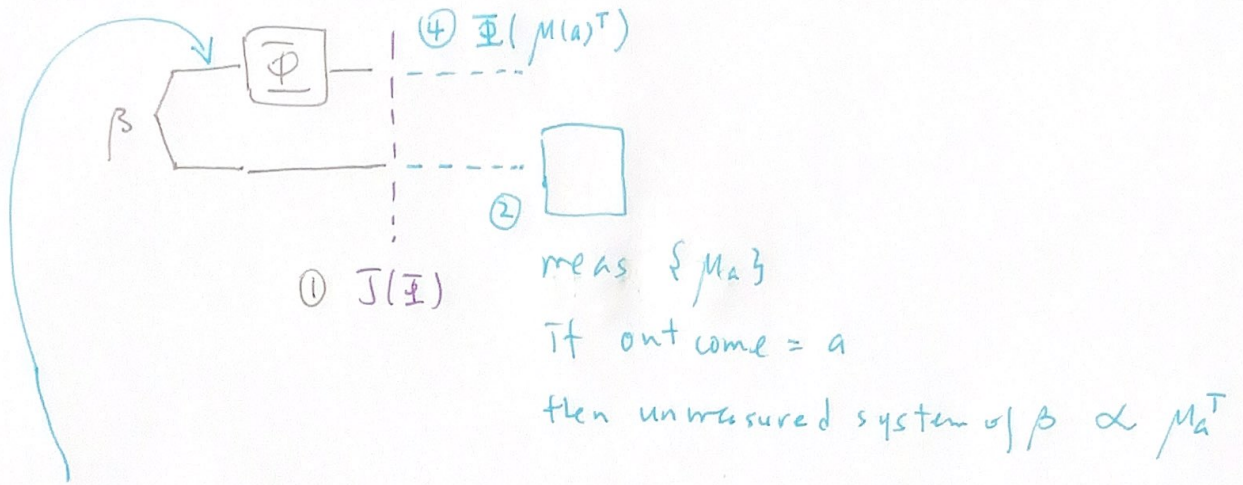 ④ Φ(μ(a)ᵀ)
Φ
β
②
① J(Φ)
meas {μₐ}
If outcome = a
then unmeasured system of β ∝ μₐᵀ